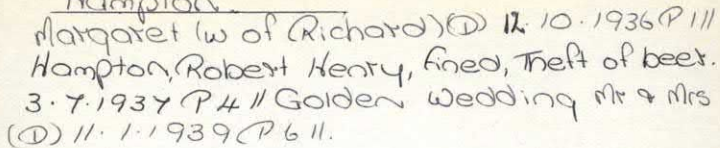 Hampton.
Margaret (w of Richard) (D) 12.10.1936 P 1 //
Hampton, Robert Henry, fined, Theft of beer.
3.7.1937 P4 // Golden Wedding Mr & Mrs
(D) 11.1.1939 P6 //.